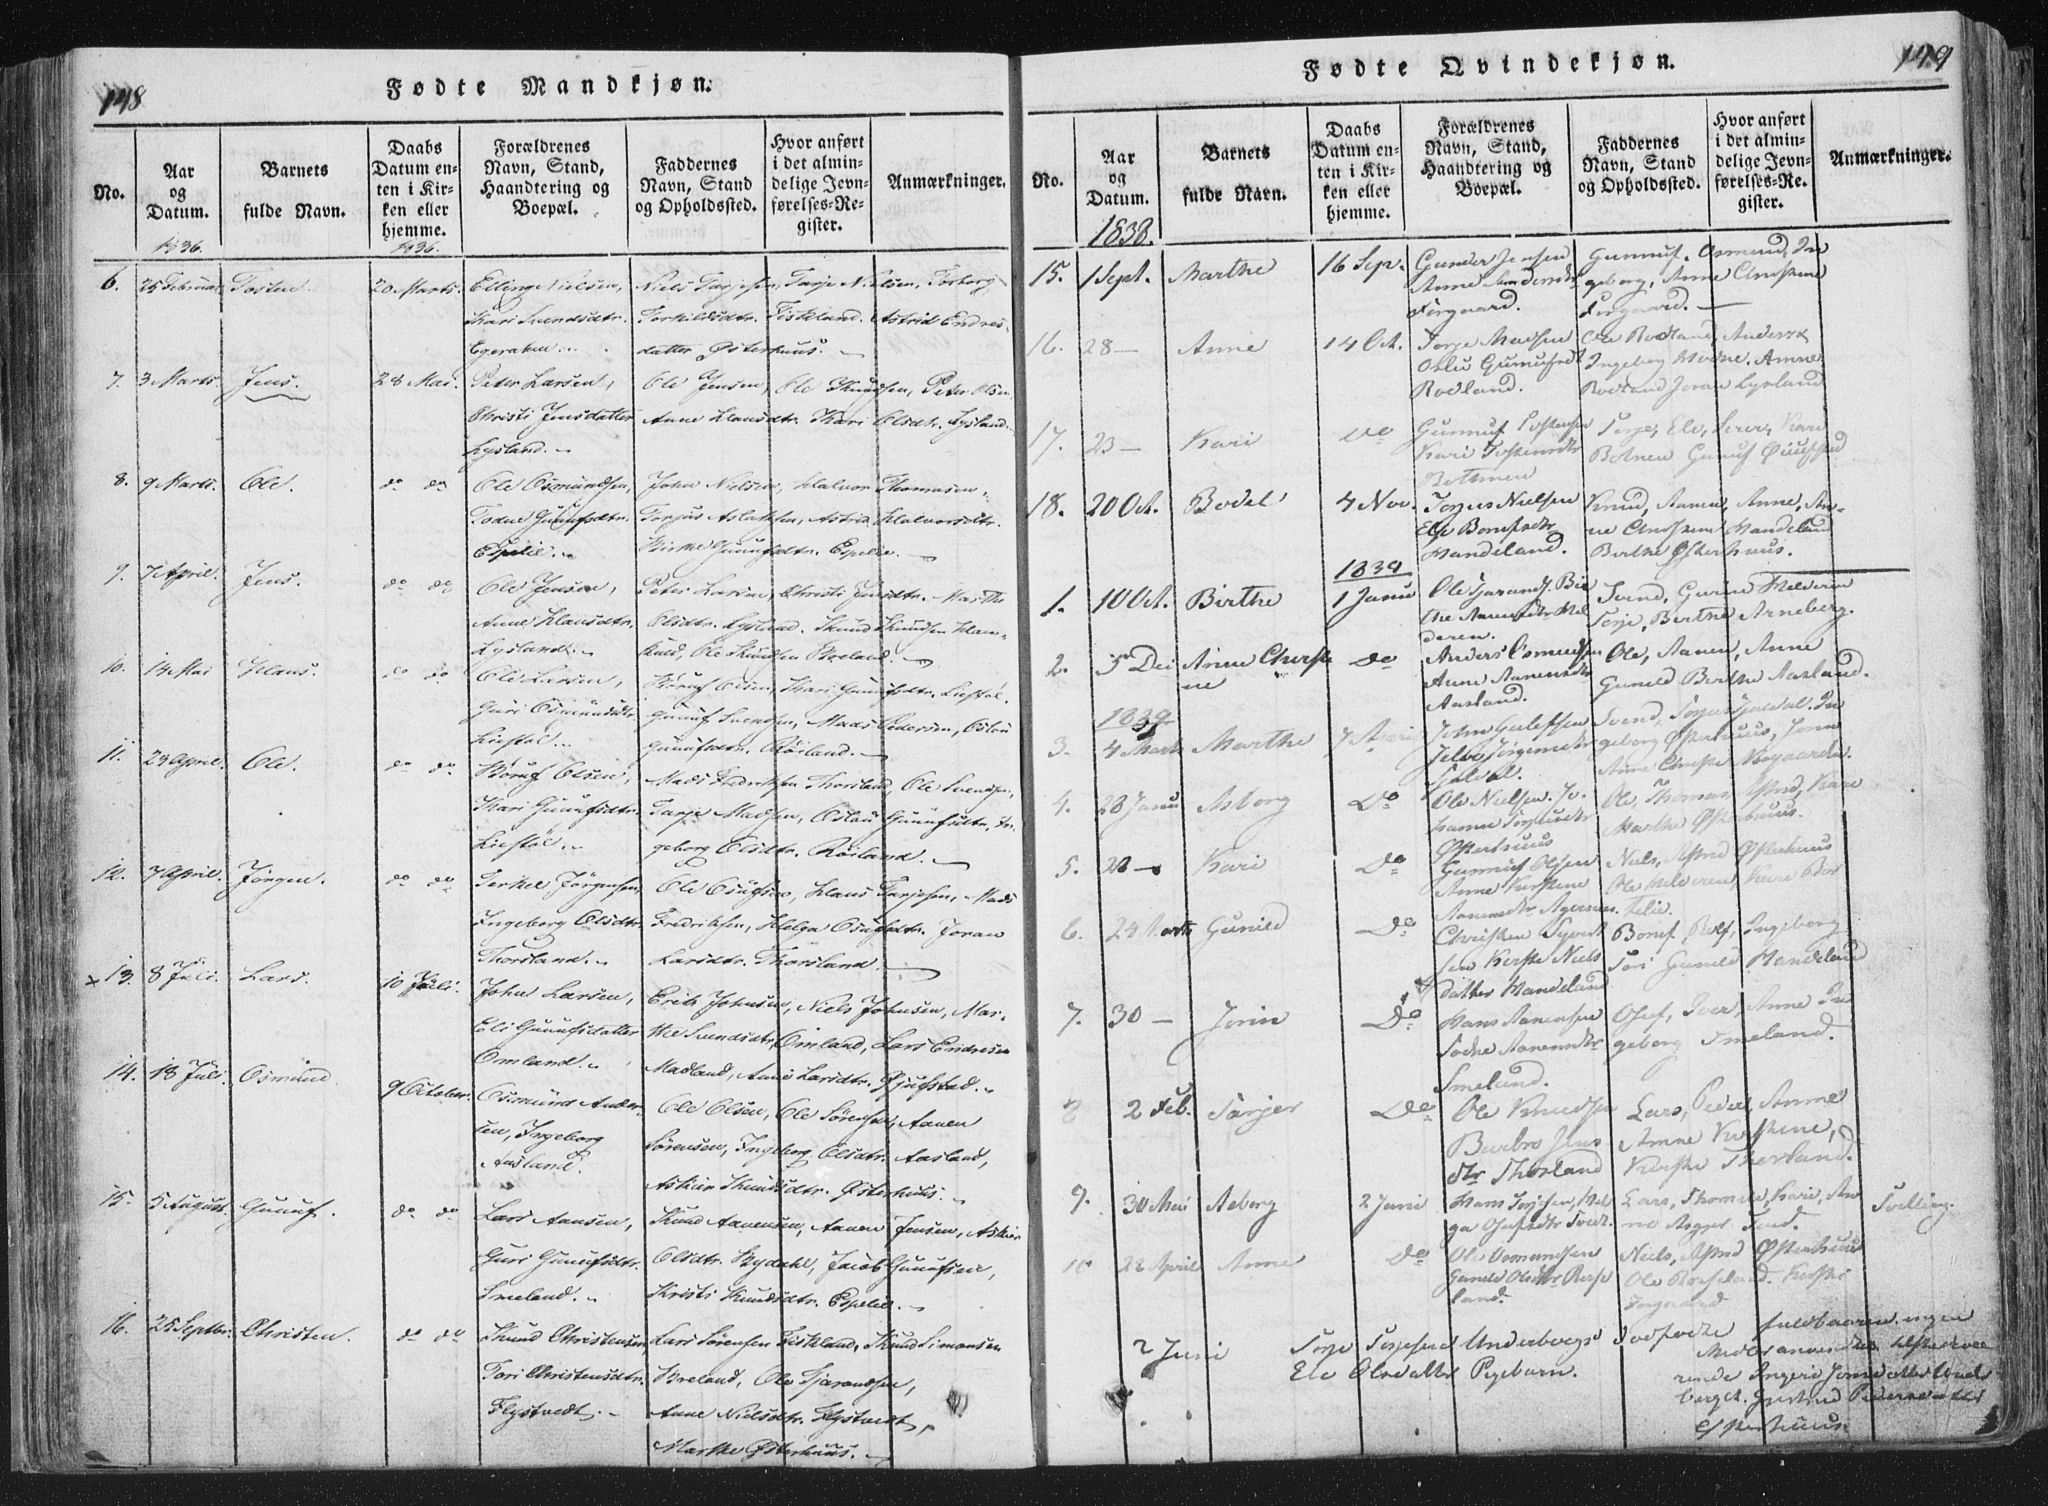 148
Fødte Mandkjøn.
No.
Aar
og
Datum.
Barnets
fulde Navn.
Daabs
Datum en-
ten i Kir-
ken eller
hjemme.
Forældrenes
Navn, Stand,
Haandtering og
Boepæl.
Faddernes
Navn, Stand
og Opholdssted.
Hvor anført
i det almin-
delige Jevn-
førelses-Re-
gister.
Anmærkninger.
1836.
1836.
6. 25 Februar Tosten. 20 Marts.
Elling Nielsen,
Kari Svendsdtr.
Egeraken.
Niels Tarjesen, Tarje Nielsen, Torborg
Torkildsdtr. Fiskland. Astrid Endres-
datter Østerhuus.
7. 3 Marts Jens. 28 Mai.
Peter Larsen,
Christi Jensdatter
Lysland.
Ole Jensen, Ole Knudsen, Peter Olsen
Anne Klausdtr. Kari Olsdtr. Lysland.
8. 9 Marts. Ole. do do
Ole Osmundsen,
Todne Gunufsdtr.
Espelie.
John Nielsen, Halvor Thomasen,
Torjus Aslaksen, Astrid Halvorsdtr.
Birthe Gunufsdtr. Espelie.
9. 7 April. Jens. do do
Ole Jensen,
Anne Klausdtr.
Lysland.
Peter Larsen, Christi Jensdtr. Marthe
Olsdtr. Lysland. Knud Knudsen
Ole Knudsen Breland.
10. 14 Mai Klaus. do do
Ole Larsen,
Guri Osmundsdtr.
Liestøl.
Børuf Olsen, Kari Gunufsdtr. Liestøl.
Gunuf Svendsen, Mads Pedersen, Oslau
Gunufsdtr. Røisland.
11. 23 April. Ole. do do
Børuf Olsen,
Kari Gunufsdtr.
Liestøl.
Mads Fredriksen Thorsland, Ole Svendsen,
Tarje Madsen, Oslau Gunufsdtr. In-
geborg Olsdtr. Røisland.
12. 7 April. Jörgen. do do
Terkel Jörgensen,
Ingeborg Olsdtr.
Thorsland.
Ole Osufsen, Klaus Tarjesen, Mads
Fredriksen, Helga Osufsdtr. Joran
Larsdtr. Thorsland
x 13. 8 Juli. Lars. 10 Juli.
John Larsen,
Eli Gunufsdatter
Omland.
Erik Johnsen, Niels Johnsen, Mar-
the Svendsdtr. Omland, Lars Endresen
Madland, Anne Larsdtr. Øjufstad.
14. 18 Juli. Osmund 9 October.
Osmund Ander-
sen, Ingeborg
Aasland.
Ole Olsen, Ole Sörensen, Aanen
Sörensen, Ingeborg Olsdtr. Aasland,
Askier Knudsdtr. Østerhuus.
15. 5 August. Gunuf. do do
Lars Aansen,
Guri Gunufsdtr.
Smeland.
Knud Aanensen, Aanen Jensen, Askier
Olsdtr. Bydahl, Jacob Gunufsen,
Kristi Knudsdtr. Espelie.
16. 25 Septbr. Christen. do do
Knud Christensen
Tori Christensdtr.
Flystvedt.
Lars Sörensen Fiskland, Knud Simonsen
Breland, Ole Tjarandsen,
Anne Nielsdtr. Flystvedt,
Marthe Østerhuus.
149
Fødte Qvindekjøn.
No.
Aar
og
Datum.
Barnets
fulde Navn.
Daabs
Datum en-
ten i Kir-
ken eller
hjemme.
Forældrenes
Navn, Stand,
Haandtering og
Boepæl.
Faddernes
Navn, Stand
og Opholdssted.
Hvor anført
i det almin-
delige Jevn-
førelses-Re-
gister.
Anmærkninger.
1838.
15. 1 Sept. Marthe 16 Sep.
Gunder Jensen
Anne
Forgaard.
Gunnuf. Osmund, In
geborg, Anne Christine
Forgaard.
16. 28 — Anne 14 Oct.
Torje Madsen
Oslu Gunufsdt
Rodland.
Ole Rodland, Anders
Ingeborg Moene. Anne
Rodland Joran Lysland
17. 23 — Kari do
Gunnuf Tostensen
Kari Tostensdtr
Bothnen
Torje, Ele, Kari
Botnen Gunuf
18. 20 Oct. Bodel 4 Nov.
Torjus Nielsen
Else Bornfsdtr
Mandeland.
Knud, Aanen, Anne, An-
ne Christine Mandeland
Birthe Østerhuus.
1839
1. 10 Oct. Birthe 1 Janu
Ole Tjarands. Bir
the Aanensdtr Mel
deren.
Svend, Gurine Melderen
Torje, Berthe Arneberg.
2. 5 Dec Anne Christi
ne do
Anders Osmundsen
Anne Aanensdtr
Aasland.
Ole, Aanen, Anne
Gunild Birthe Aasland.
1839
3. 4 Marts Marthe 7 April
John Gulefsen
Jørgensdtr
Sjaldal.
Svend, Torjus Sjaldal. In
geborg Østerhuus, Jonn
Anne Christe
4. 28 Janu Asborg Do
Ole Nielsen. Jo-
hanne Torjusdtr
Østerhuus
Ole, Thomas, Astrid, Kari
Marthe Østerhuus.
5. 28 — Kari Do
Gunnuf Olsen
Anne Kirstine
Aanensdtr
Niels, Astrid Østerhuus
Ole Melderen, Kari
6. 24 Marts Gunild Do
Christen Syvert
sen Kirste Niels
datter Mandeland
Bornf, Rolf, Ingeborg
Tori Gunild Mandeland
7. 30 — Jorin Do
Hans Aanensen
Todne Aanensdtr
Smeland.
Osuf, Iver, Anne In
geborg Smeland.
8 2 Feb. Tarjer Do
Ole Knudsen
Barbro Jens
dtr Thorland
Lars, Peder, Anne
Anne Kirstine,
Kirste Thorland.
9. 30 Mai Asborg 2 Juni
Hans Torjesen, Hel
ga Osufsdtr
Lars, Thomas, Kari, An
ne Asger
10 28 April Anne do
Ole Osmundsen
Gunild Olsdtr Rosse
land.
Niels, Astrid Østerhuus
Ole Rosseland. Kirste
Forgaard
2 Juni
Torje Torjesen Underbergs Dødfødte fuldbaaren. ingen
Ele Olsdatter Pigebarn.
Pedersdatter
Østerhuus.